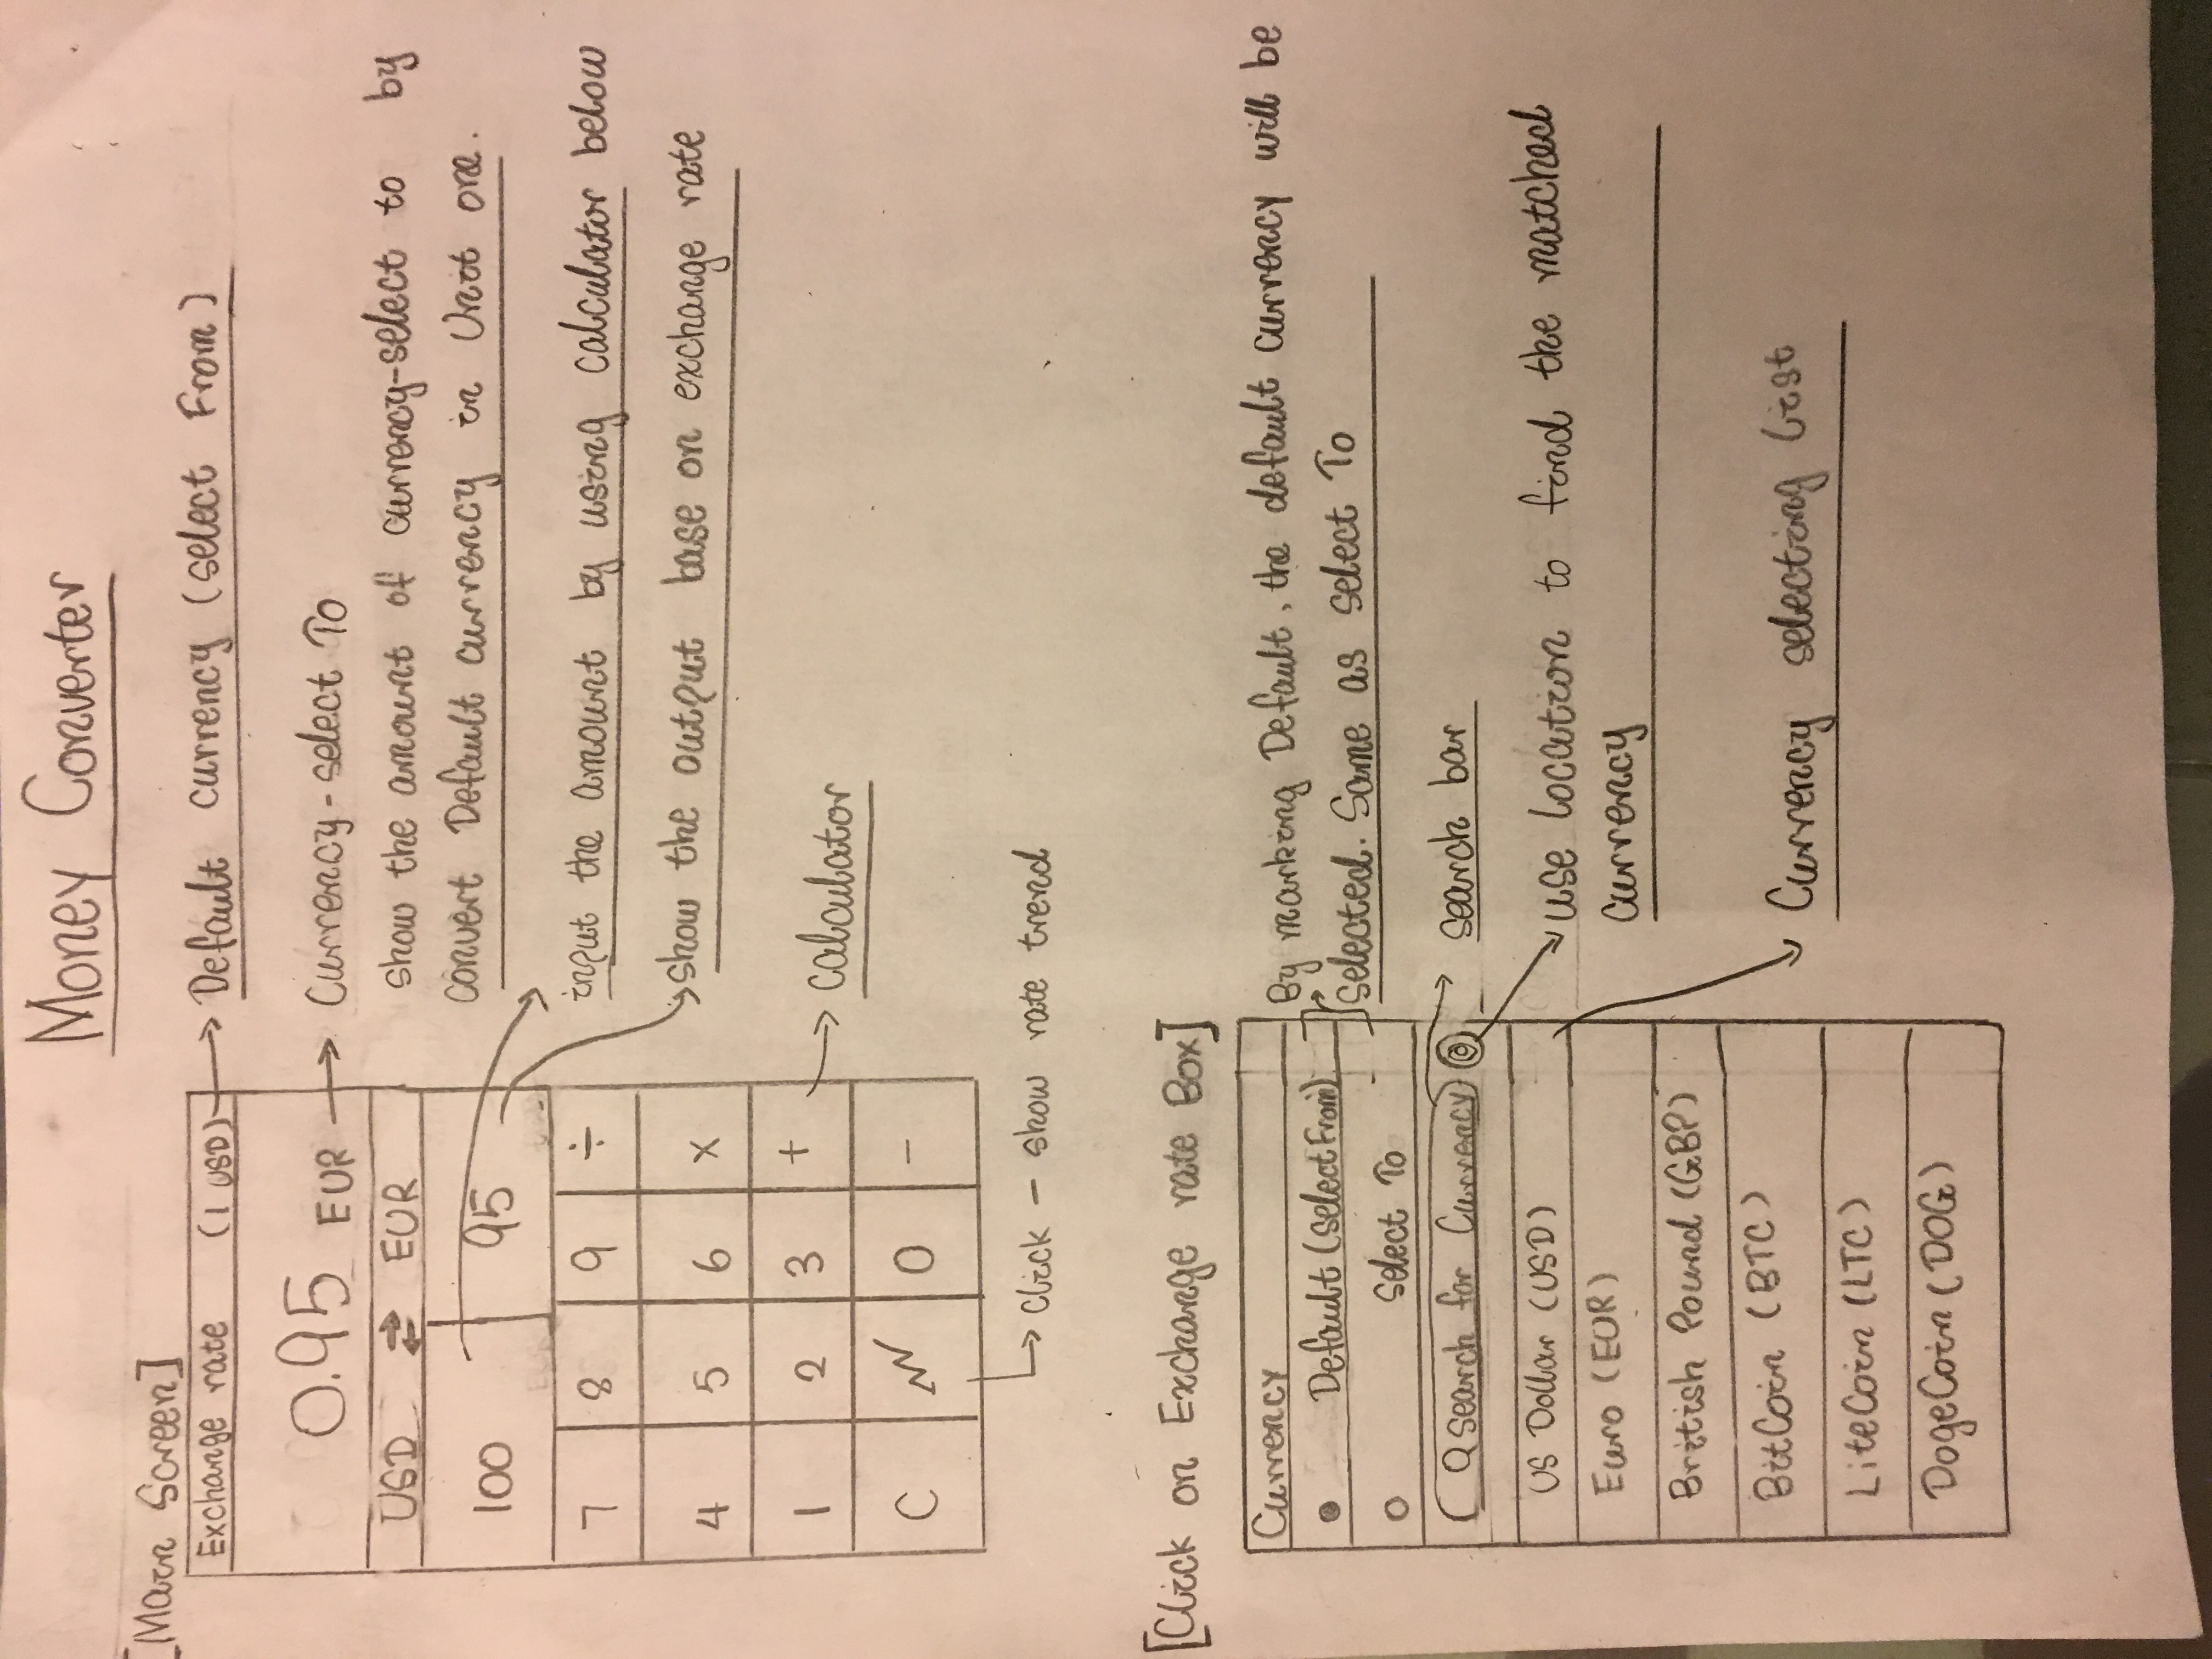 Money Converter
[Main Screen]
Exchange rate (1 USD)
Default currency (select From)
0.95 EUR
Currency-select To
show the amount of currency-select to by
convert Default currency in Unit one.
USD ⇄ EUR
100 95
input the amount by using calculator below
show the output base on exchange rate
7 8 9 ÷
4 5 6 ×
1 2 3 +
Calculator
C 0 −
Click - show rate trend
[Click on Exchange rate Box]
Currency
Default (select From)
Select To
By marking Default, the default currency will be
selected. Same as select To
Search for Currency
search bar
use location to find the matched
currency
US Dollar (USD)
Euro (EUR)
British Pound (GBP)
BitCoin (BTC)
LiteCoin (LTC)
DogeCoin (DOG)
Currency selecting list